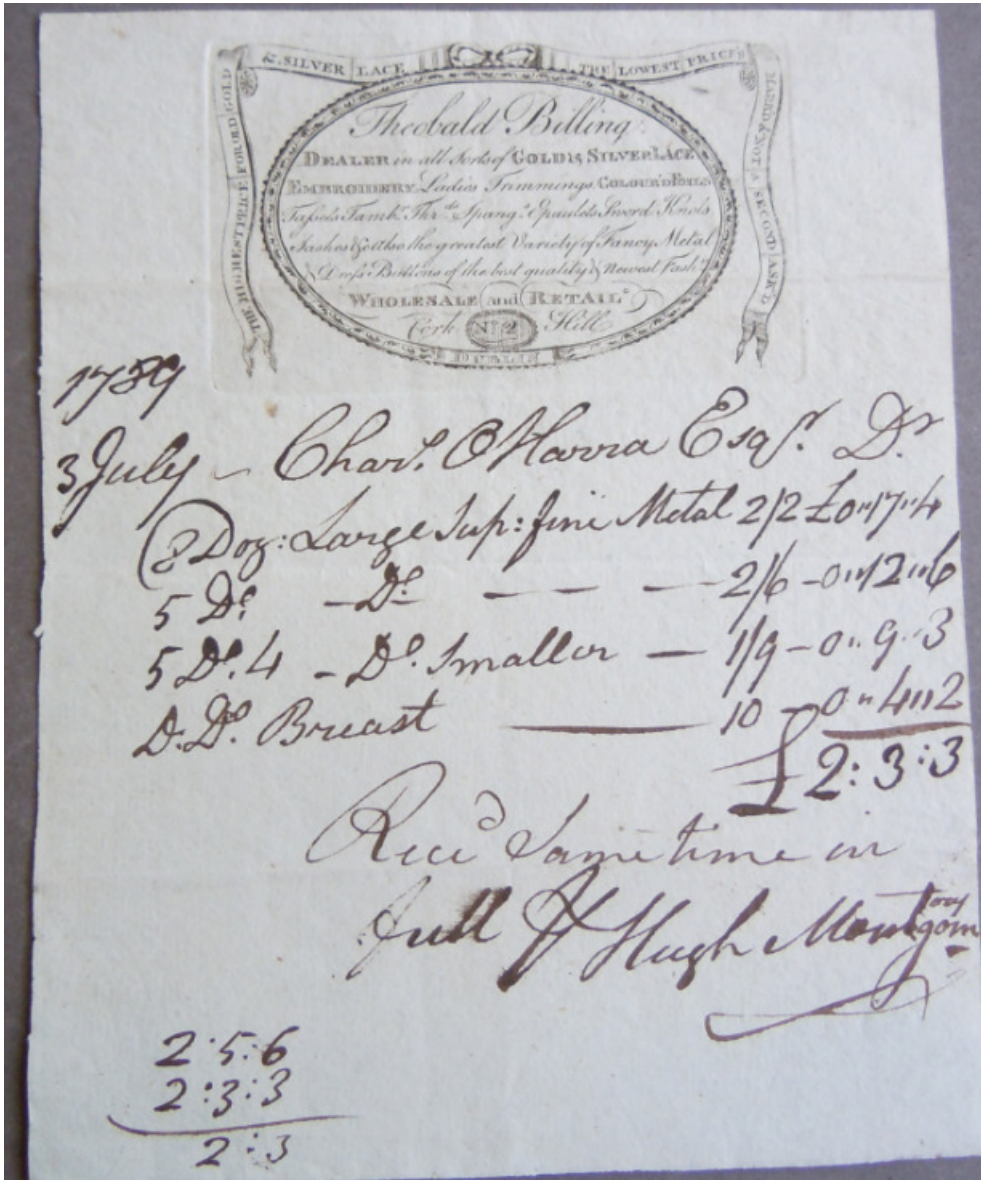 THE HIGHEST PRICE FOR OLD GOLD
& SILVER LACE THE LOWEST PRICE
MARK'D & NOT A SECOND ASK'D
Theobald Billing
DEALER in all Sorts of GOLD & SILVER LACE
EMBROIDERY Ladies Trimmings COLOUR'D FOILS
Tassels Tamb.r Thr.ds Spang.s Epaulets Sword Knots
Sashes & Also the greatest Variety of Fancy Metal
& Dress Buttons of the best quality & Newest Fash.n
WHOLESALE and RETAIL
Cork No. 2 Hill
DUBLIN
1789
3 July - Char.s O Harra Esq.r Dr
8 Doz: Large Sup: fine Metal 2/2 £0"17"4
5 Do. - Do. - - - 2/6 - 0"12"6
5 Do. 4 - Do. Smaller - 1/9 - 0"9"3
D. Do. Breast - 10 - 0"4"2
£2:3:3
Rec'd Same time in
full Hugh Montgomory
2:5:6
2:3:3
2:3